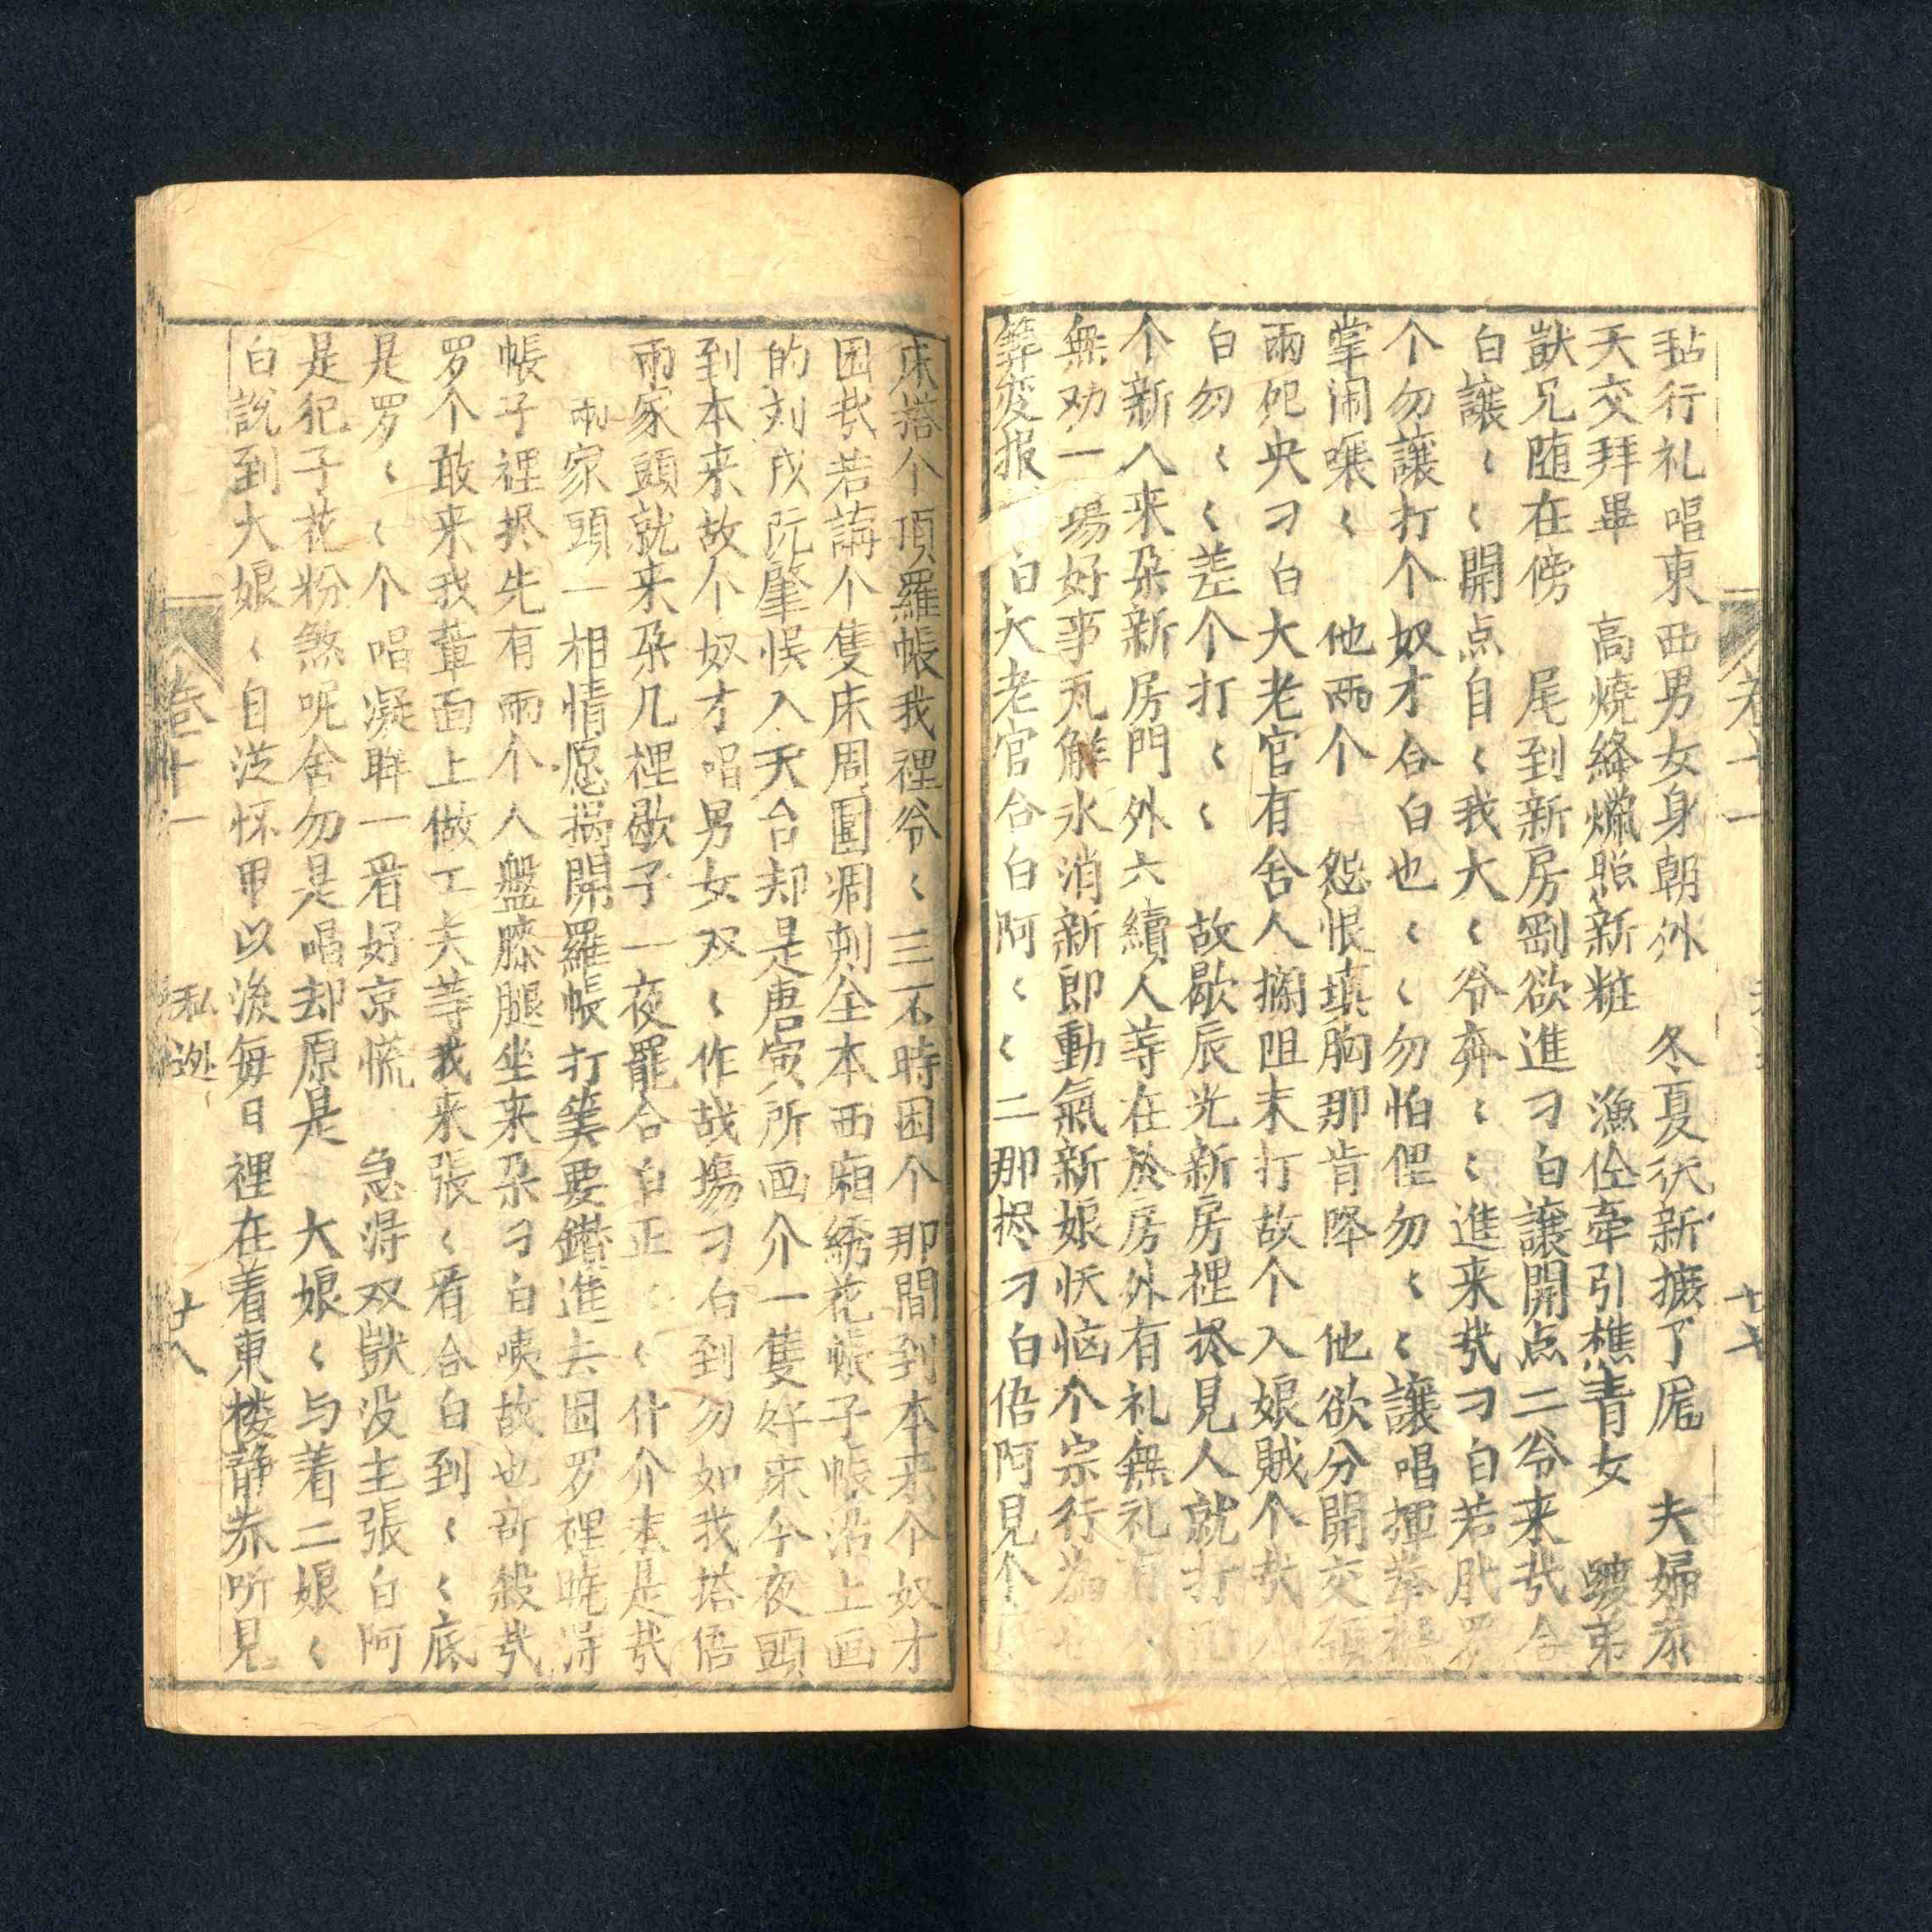 毡行礼唱東西男女身朝外　冬夏衣新摭了尾　夫婦叅
天交拜畢　高燒絳燭照新粧　漁住牽引樵青女　皢弟
獃兄随在傍　尾到新房剛欲進刁白讓開点二爷来哉合
白讓〻〻開点自〻我大〻爷奔〻〻進来哉刁白若肰罗
个勿讓打个奴才合白也〻〻勿怕俚勿〻〻讓唱揮拳
掌闹嚷〻　他兩个　怨恨填胸那肯降　他欲分開交
兩邜央刁白大老官有舍人攔阻末打故个入娘賊个哉
白勿〻〻〻差个打〻〻　故歇辰光新房裡挤見人就打
个新人来朶新房門外六續人等在於房外有礼無礼
無劝一場好事瓦觧氷消新郎動氣新娘恹恼个宗行為
筭变报　白大老官合白阿〻〻二那挤刁白俉阿見个
卷十一
十七
床搭个頂羅帳我裡爷〻三不時困个那間到本来个奴才
困哉若論个隻床周圍凋刺全本西廂綉花帳子帳沿上画
的刘成阮肇悮入天台却是唐寅所画介一隻好床今夜頭
到本来故个奴才唱男女双〻作战塲刁白到勿如我搭俉
兩家頭就来朶几裡歇子一夜罷合白正〻〻什介末是哉
兩家頭一相情愿揭開羅帳打筭要鑽進去困罗裡曉淂
帳子裡挤先有兩个人盤膝腿坐来朶刁白咦故也奇殺哉
罗个敢来我輩面上做工夫等我来張〻看合白到〻〻底
是罗〻〻个唱凝眸一看好京慌　急淂双獃没主張白阿
是犯子花粉煞呢舍勿是唱却原是　大娘〻与着二娘〻
白說到大娘〻自從怀甲以後每日裡在着東楼静养听見
卷十一
私迯
廿八